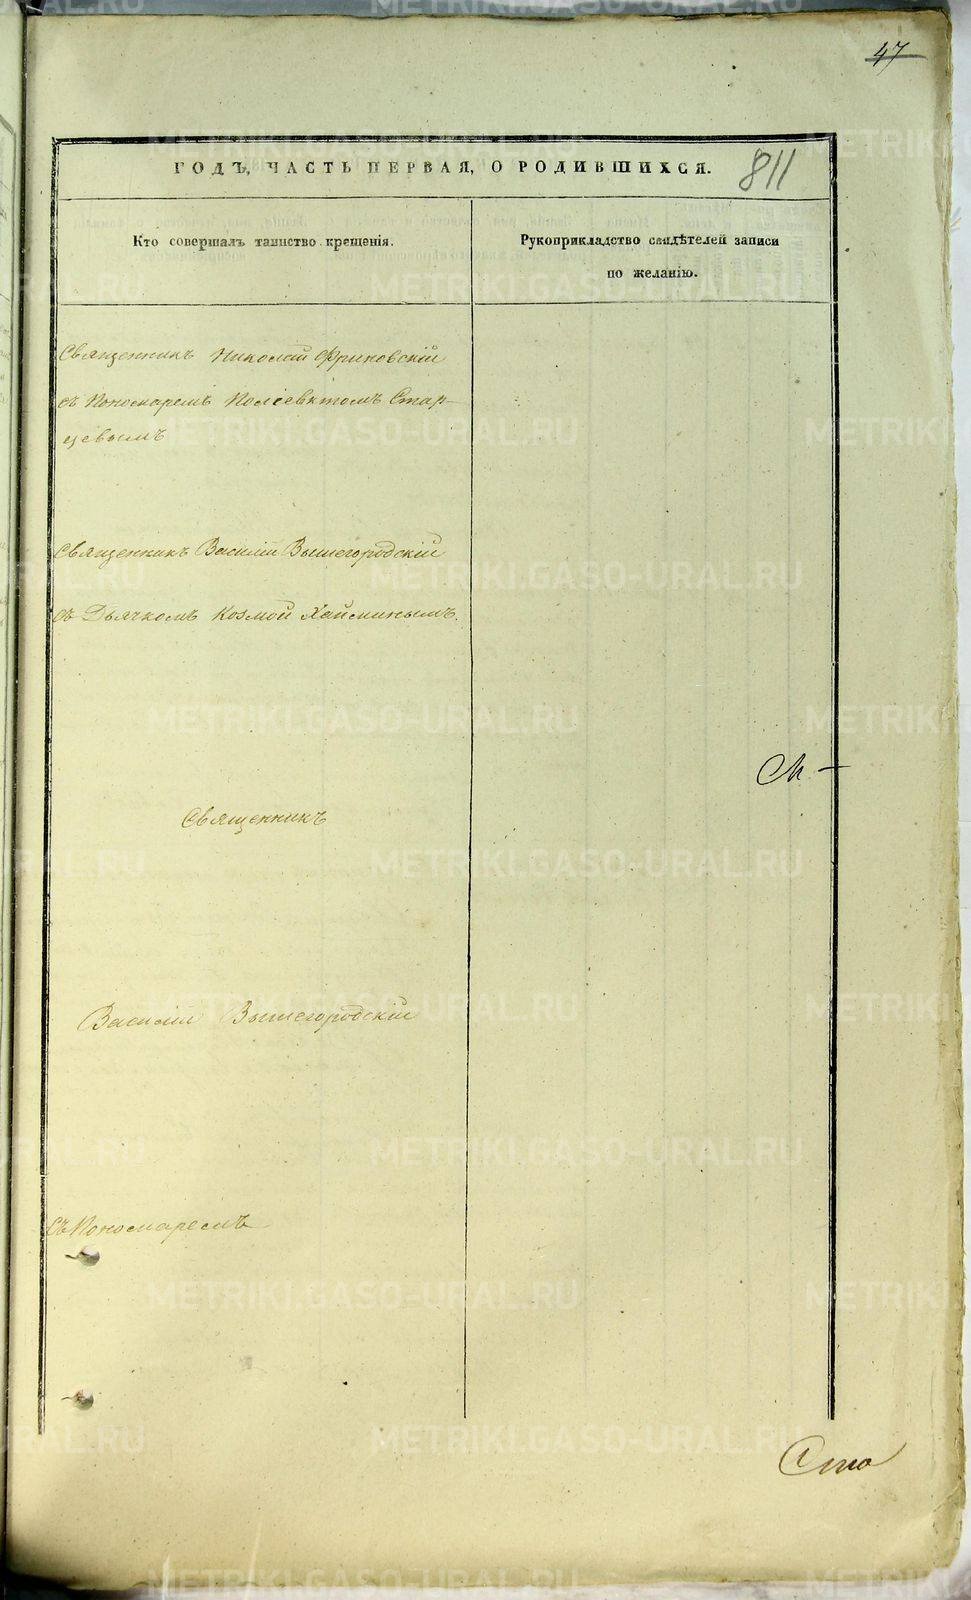 47
ГОДЪ, ЧАСТЬ ПЕРВАЯ, О РОДИВШИХСЯ.
811
Кто совершалъ таинство крещенія.
Рукоприкладство свидѣтелей записи
по желанію.
Священникъ Николай Фриковскій
съ Пономаремъ Полієвктомъ Стар-
цевымъ
Священникъ Василій Вышегородскій
съ Дьячкомъ Козмой Хайминымъ.
Священникъ
Василій Вышегородскій
Съ Пономаремъ
METRIKI.GASO-URAL.RU